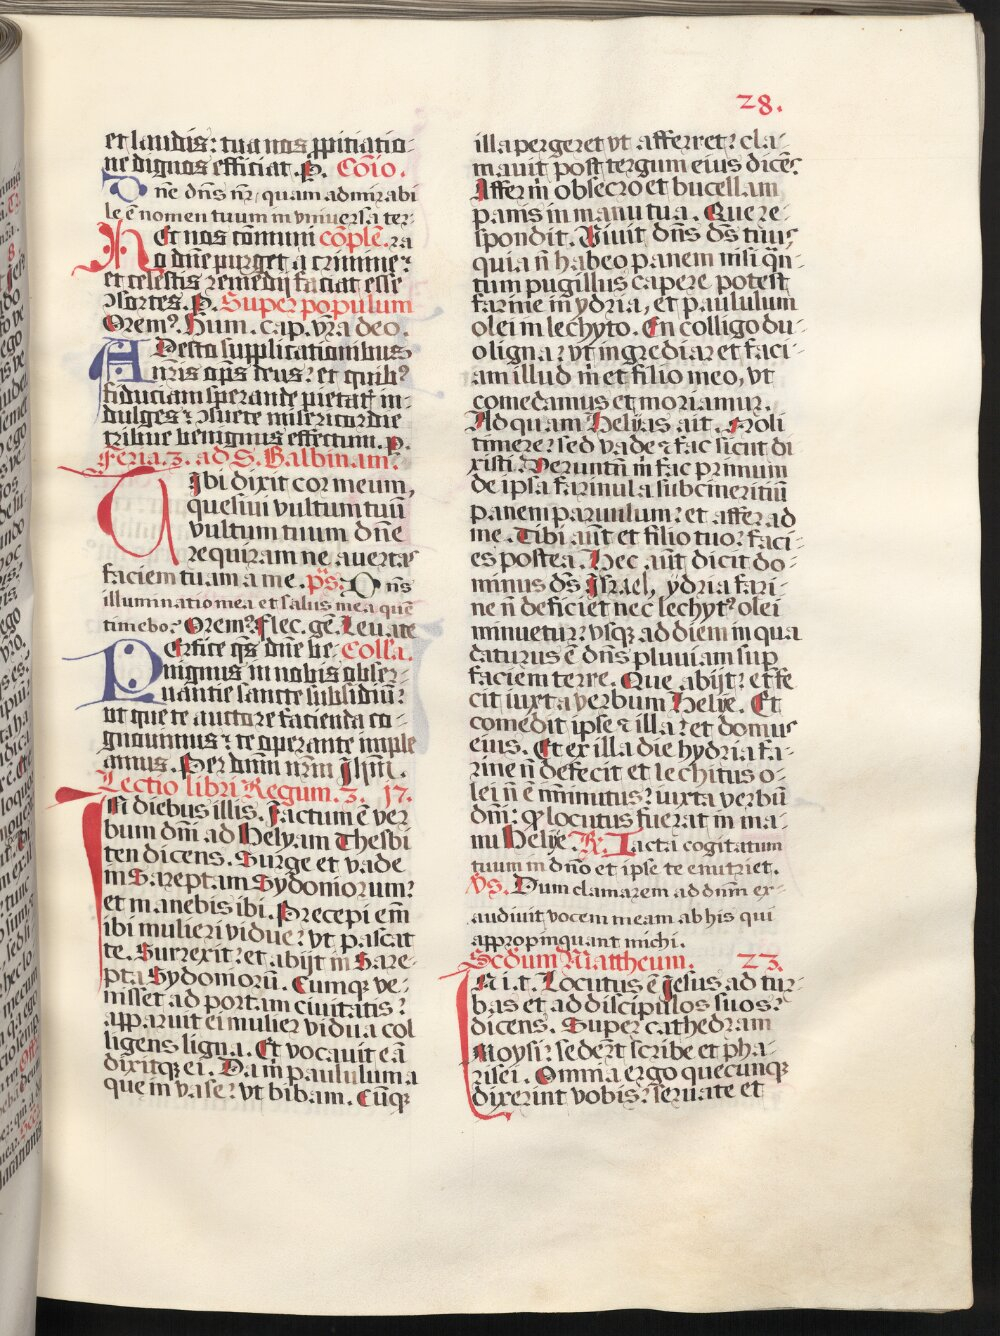 28.
et laudis: tua nos ppitiatio-
ne dignos efficiat. P. Cōio.
Dne dn̄s nr̄, quam admirabi
le ē nomen tuum in vniuersa ter-
Et nos cōmuni cōplē. ra
No dn̄e purget a crimine:
et celestis remedij faciat esse
ɔsortes. P. Super populum
Orem9. Hum. cap. vr̄a deo.
ADesto supplicationibus
nr̄is op̄s deus: et quib9
fiduciam sperande pietat in-
dulges: ɔsuete misericordie
tribue benignus effectum. P.
Feria. 3. ad S. Balbinam.
TIbi dixit cor meum,
quesiui vultum tuū
vultum tuum dn̄e
requiram ne auertas
faciem tuam a me. ps. Dn̄s
illuminatio mea et salus mea quē
timebo: Orem9. Flec. gē. Leuate
PErfice qs dn̄e be Collā.
nignus in nobis obser-
uantie sancte subsidiū:
ut que te auctore facienda co-
gnouimus: te operante imple
amus. Per dnm nrm Jhm.
Lectio libri Regum. 3. 17.
IN diebus illis. Factum ē ver
bum dn̄i ad Helyam Thesbi
ten dicens. Surge et vade
in Sareptam Sydoniorum:
et manebis ibi. Precepi em̄
ibi mulieri vidue: vt pascat
te. Surrexit: et abijt in Sare-
pta Sydoniorū. Cumqe ve-
nisset ad portam ciuitatis:
apparuit ei mulier vidua col
ligens ligna. Et vocauit eā
dixitqe ei. Da m̄ paululum a
que in vase: vt bibam. Cūqe
illa pergeret vt afferret: cla-
mauit post tergum eius dicēs
Affer m̄ obsecro et bucellam
panis in manu tua. Que re-
spondit. Viuit dn̄s ds̄ tuus
quia n̄ habeo panem nisi qn̄
tum pugillus capere potest
farine in ydria, et paululum
olei in lechyto. En colligo du-
o ligna: vt ingrediar et faci-
am illud m̄ et filio meo, vt
comedamus et moriamur.
Ad quam Helyas ait. Noli
timere: sed vade & fac sicut di
xisti. Veruntn̄ m̄ fac primum
de ipsa farinula subcineritiū
panem paruulum: et affer ad
me. Tibi aūt et filio tuo: faci-
es postea. Hec aūt dicit do-
minus ds̄ Israel, ydria fari-
ne n̄ deficiet nec lechyt9 olei
minuetur: vsqe ad diem in qua
daturus ē dn̄s pluuiam sup
faciem terre. Que abijt: et fe
cit iuxta verbum Helije. Et
comedit ipse & illa: et domus
eius. Et ex illa die hydria fa-
rine n̄ defecit et lechitus o-
lei n̄ ē īminutus: iuxta verbū
dn̄i: qd locutus fuerat in ma-
nu Helije. R. Iacta cogitatum
tuum in dn̄o et ipse te enutriet.
Vs. Dum clamarem ad dn̄m ex-
audiuit vocem meam ab his qui
appropinquant michi.
Scdum Mattheum. 23.
IN i. t. Locutus ē Jesus ad tur-
bas et ad discipulos suos:
dicens. Super cathedram
Moysi: sedert scribe et pha-
risei. Omnia ergo quecunqe
dixerint vobis: seruate et